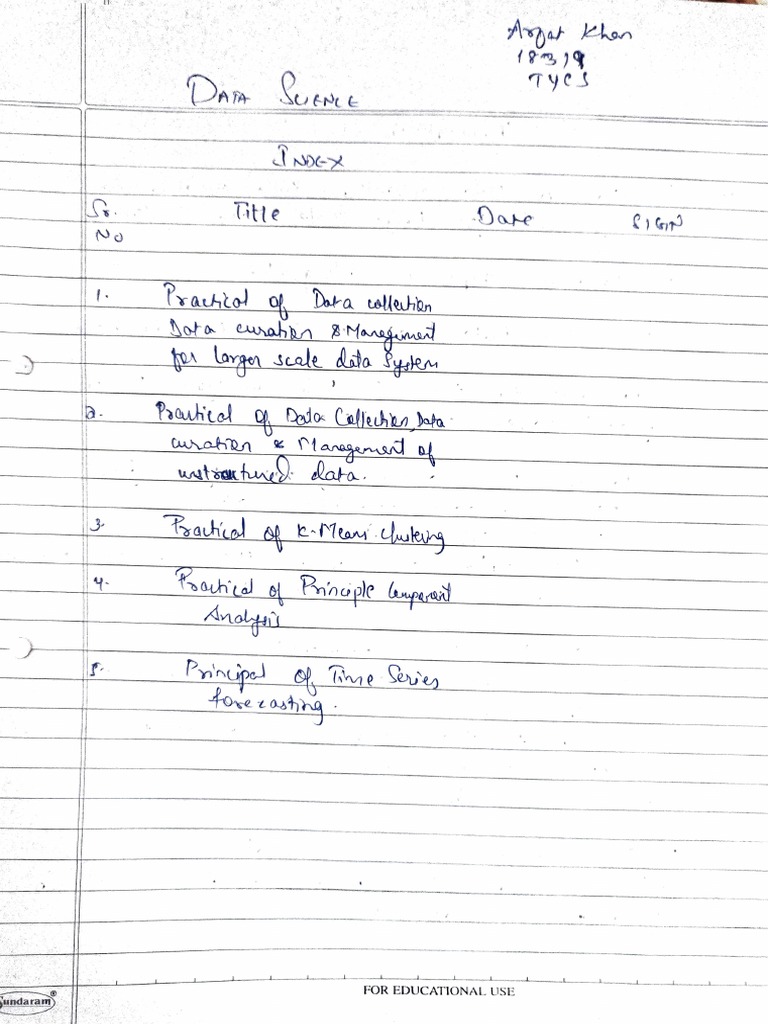 Arfat Khan
18319
TYCS
DATA SCIENCE
INDEX
Sr. Title Date SIGN
No
1. Practical of Data collection
Data curation & Management
for larger scale data System
2. Practical of Data Collection, Data
curation & Management of
unstructured data.
3. Practical of K-Means Clustering
4. Practical of Principle Component
Analysis
5. Principal of Time Series
forecasting.
FOR EDUCATIONAL USE
Sundaram®